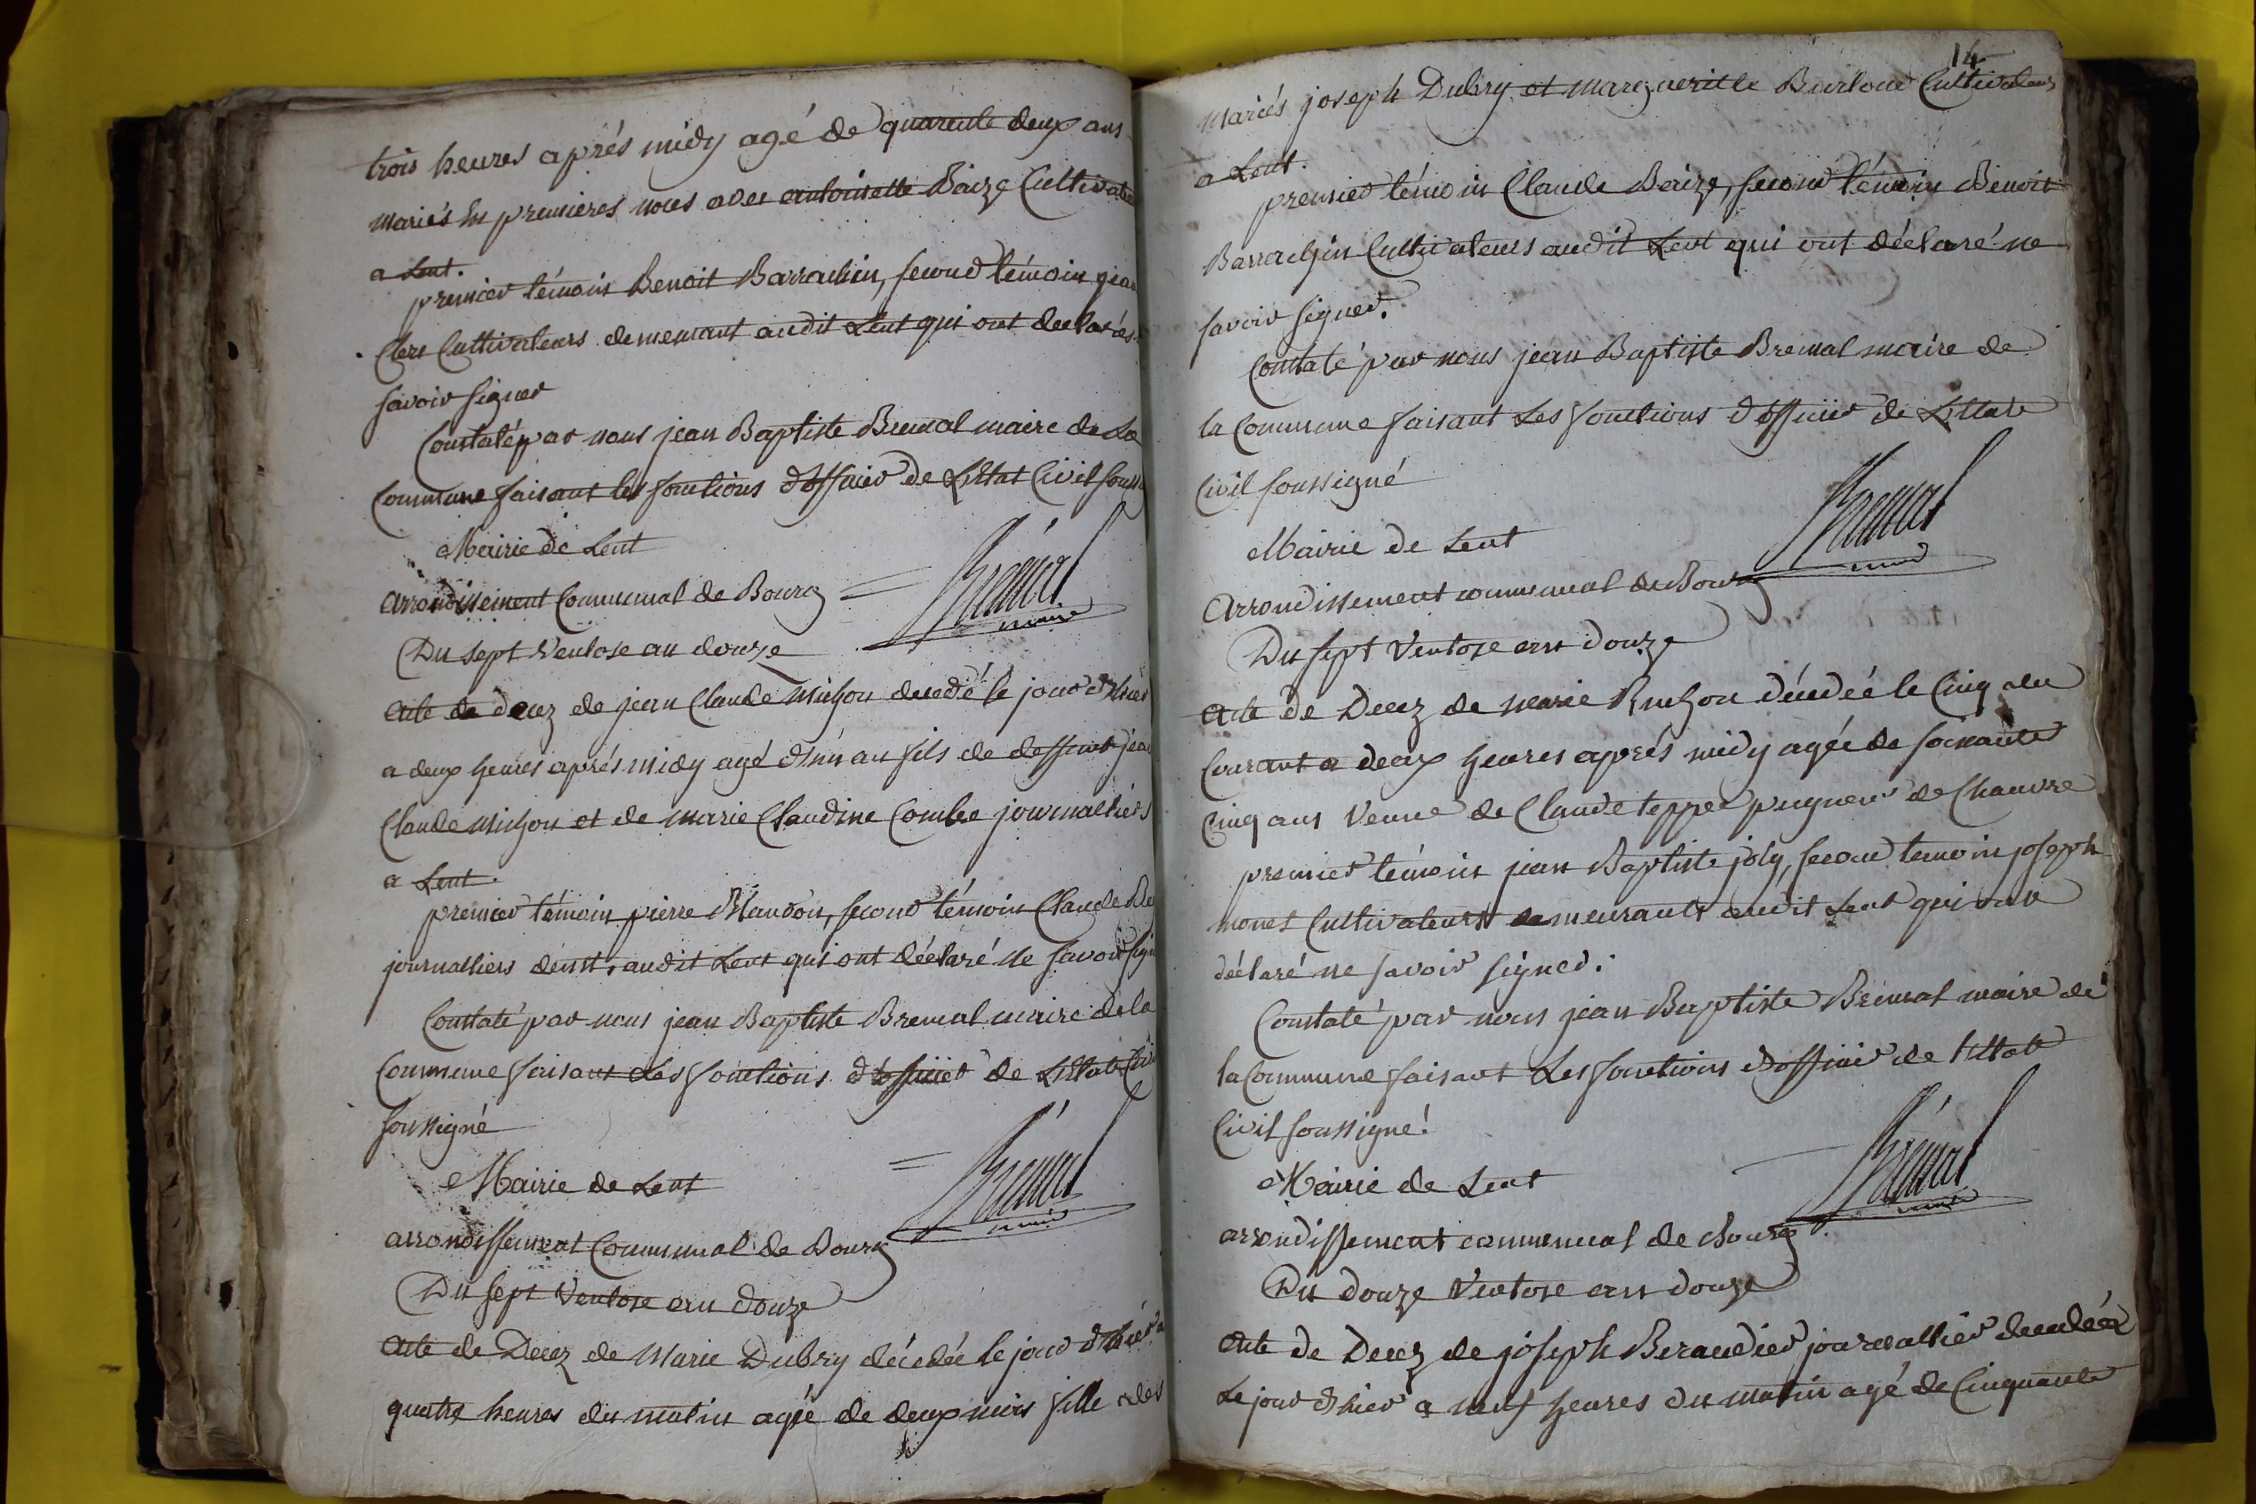 trois heures aprés midy agé de quarente deux ans
mariés En premieres noces avec antoinette Baize Cultivate
a Lent.
premier témoin Benoit Barrachin, second témoin jean
Clerc Cultivateurs demeurant audit Lent qui ont declarés
savoir signer
Constaté par nous jean Baptiste Bremal maire de La
Commune faisant les fonctions d'officier de L'Etat Civil souss
Mairie de Lent
arrondissement Communal de Bourg
Bremal
maire
Du sept Ventose an douze
acte de decez de jean Claude Michon decedé le jour d'hier
a deux heures aprés midy agé d'un an fils de deffunt jean
Claude Michon et de Marie Claudine Combe journalliers
a Lent.
premier témoin pierre Blandon, second témoin Claude
journalliers demt. audit Lent qui ont déclaré ne savoir sign
Constaté par nous jean Baptiste Bremal maire de la
Commune faisant Les fonctions d'officier de L'Etat Civi
soussigné
Mairie de Lent
Bremal
maire
arrondissement Communal de Bourg
Du sept Ventose an douze
acte de Decez de Marie Dubry décédée le jour d'hier a
quatre heures du matin agée de deux mois fille des
14
mariés joseph Dubry et marguerite Burloud Cultivateurs
a Lent.
premier témoin Claude Baize, second témoin Benoit
Barrachin Cultivateurs audit Lent qui ont déclaré ne
savoir signer.
Constaté par nous jean Baptiste Bremal maire de
la Commune faisant Les fonctions d'officier de L'Etat
Civil soussigné
Bremal
maire
Mairie de Lent
Arrondissement communal de Bourg
Du sept Ventose an douze
acte de Decez de Marie décédée le Cinq du
Courant a deux heures aprés midy agée de soixante
Cinq ans Veuve de Claude tepper pugneur de Chanvre
premier témoin jean Baptiste joly, second temoin joseph
monet Cultivateurs demeurants audit Lent qui ont
déclaré ne savoir signer.
Constaté par nous jean Baptiste Bremal maire de
la Commune faisant Les fonctions d'officier de l'Etat
Civil soussigné
Bremal
maire
Mairie de Lent
arrondissement communal de Bourg
Du douze Ventose an douze
acte de Decez de joseph Beraudier journallier decedé
Le jour d'hier a neuf heures du matin agé de Cinquante